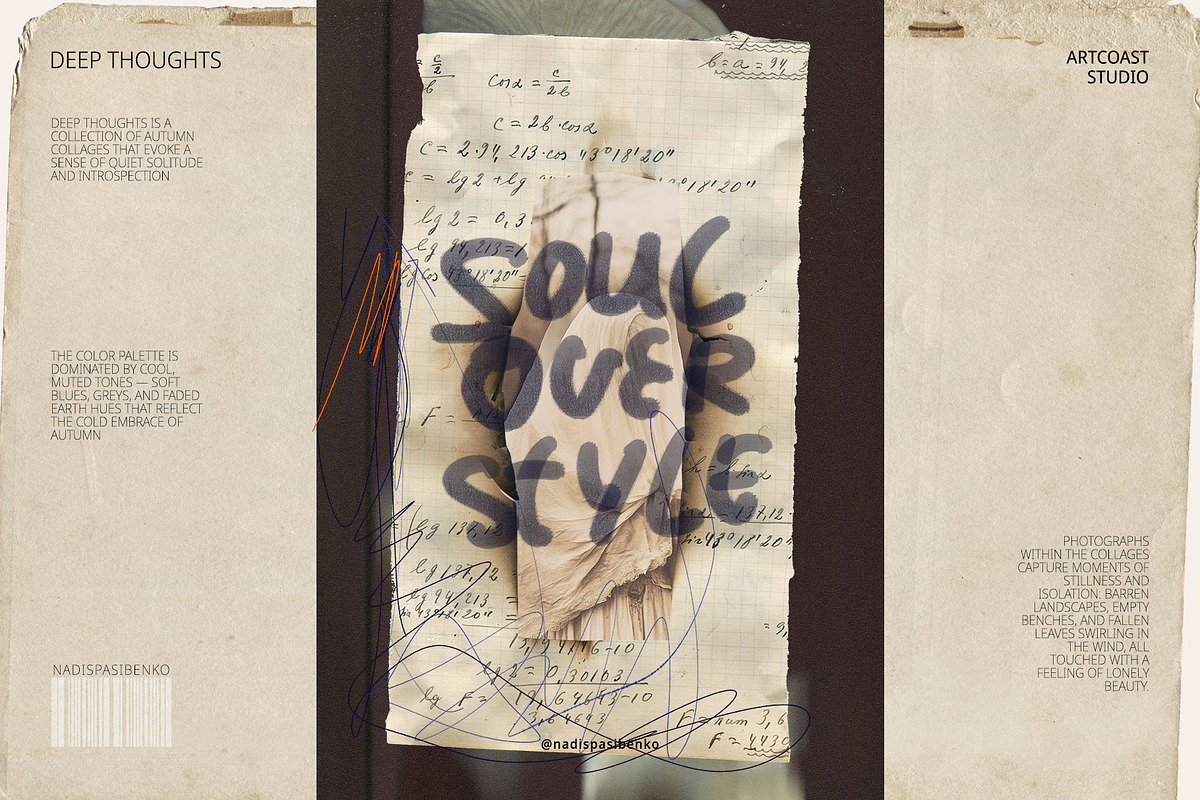 DEEP THOUGHTS
DEEP THOUGHTS IS A
COLLECTION OF AUTUMN
COLLAGES THAT EVOKE A
SENSE OF QUIET SOLITUDE
AND INTROSPECTION
THE COLOR PALETTE IS
DOMINATED BY COOL,
MUTED TONES — SOFT
BLUES, GREYS, AND FADED
EARTH HUES THAT REFLECT
THE COLD EMBRACE OF
AUTUMN
NADISPASIBENKO
c/2
b
cosα = c/2b
b = a = 94, 2
c = 2b·cosα
c = 2·94, 213·cos 43°18'20"
c = lg2 + lg
18'20"
lg 2 = 0,3
lg 94,213=1
lg cos 43°18'20"
SOUL
OVER
STYLE
F =
h = b sinα
137,12
lg 137,12
sin 43°18'20"
lg 137,12
lg 94,213 =
sin 43°18'20" =
lg 2 = 0,30103
lg F = 17,64693-10
3,64693
F = num 3,6
F = 4430
@nadispasibenko
ARTCOAST
STUDIO
PHOTOGRAPHS
WITHIN THE COLLAGES
CAPTURE MOMENTS OF
STILLNESS AND
ISOLATION: BARREN
LANDSCAPES, EMPTY
BENCHES, AND FALLEN
LEAVES SWIRLING IN
THE WIND, ALL
TOUCHED WITH A
FEELING OF LONELY
BEAUTY.